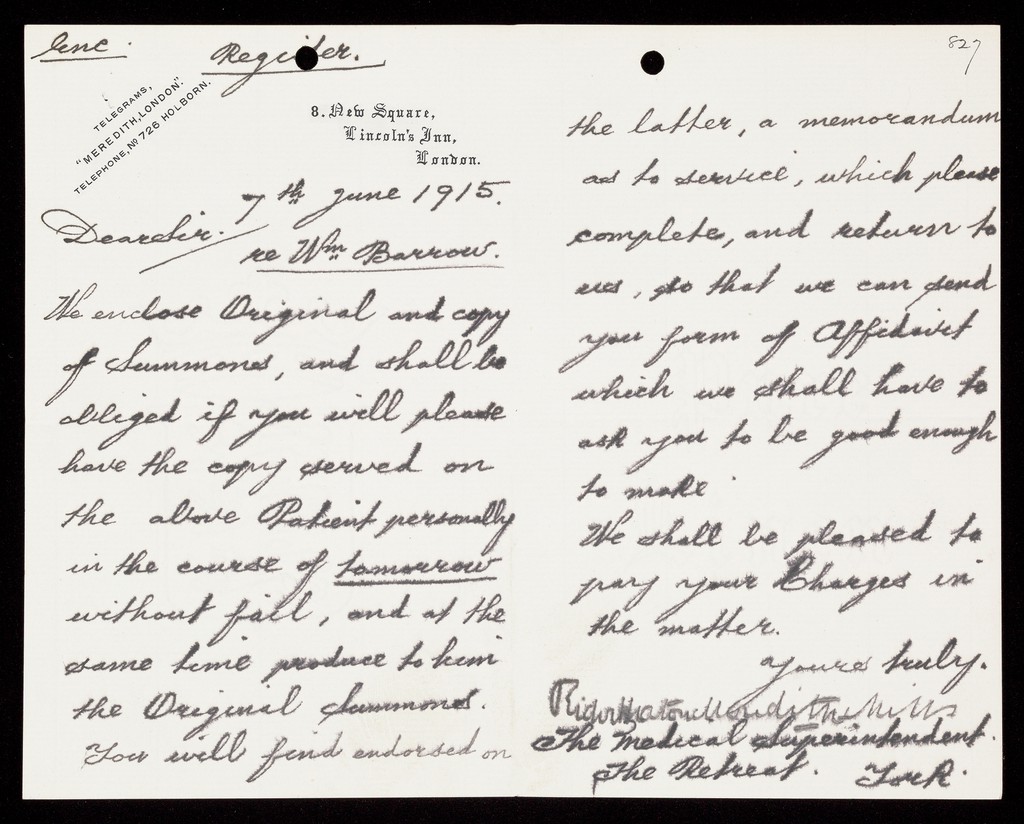 Enc.
Register.
TELEGRAMS,
"MEREDITH, LONDON."
TELEPHONE, No 726 HOLBORN.
8. New Square,
Lincoln's Inn,
London.
7th June 1915.
Dear Sir.
re Wm Barrow.
We enclose Original and copy
of Summons, and shall be
obliged if you will please
have the copy served on
the above Patient personally
in the course of tomorrow
without fail, and at the
same time produce to him
the Original Summons.
You will find endorsed on
827
the latter, a memorandum
as to service, which please
complete, and return to
us, so that we can send
you form of Affidavit
which we shall have to
ask you to be good enough
to make
We shall be pleased to
pay your Charges in
the matter.
Yours truly.
Meredith Mills
The Medical Superintendent.
The Retreat. York.